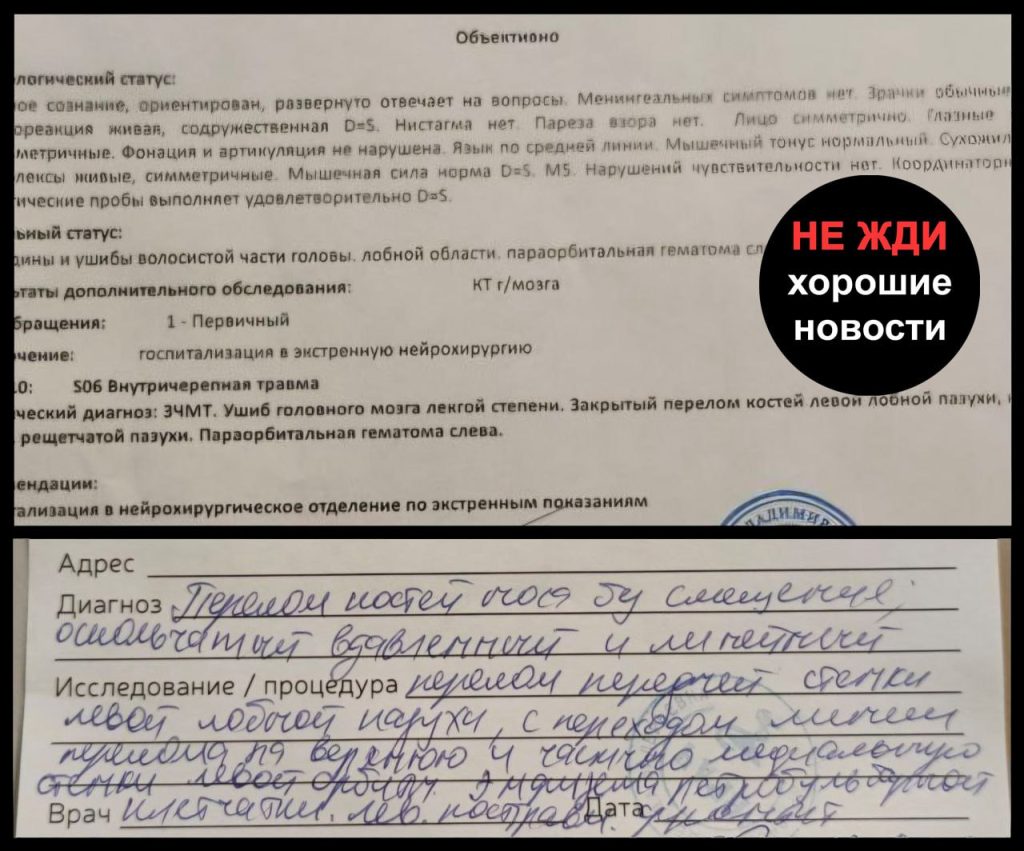 Объективно
логический статус:
ое сознание, ориентирован, развернуто отвечает на вопросы. Менингеальных симптомов нет. Зрачки обычные
ореакция живая, содружественная D=S. Нистагма нет. Пареза взора нет. Лицо симметрично. Глазные
метричные. Фонация и артикуляция не нарушена. Язык по средней линии. Мышечный тонус нормальный. Сухожил
лексы живые, симметричные. Мышечная сила норма D=S. M5. Нарушений чувствительности нет. Координаторн
тические пробы выполняет удовлетворительно D=S.
ьный статус:
дины и ушибы волосистой части головы. лобной области. параорбитальная гематома сл
НЕ ЖДИ
хорошие
новости
ьтаты дополнительного обследования: КТ г/мозга
бращения: 1 - Первичный
чение: госпитализация в экстренную нейрохирургию
.0: S06 Внутричерепная травма
ческий диагноз: ЗЧМТ. Ушиб головного мозга лекгой степени. Закрытый перелом костей левой лобной пазухи,
рещетчатой пазухи. Параорбитальная гематома слева.
ендации:
ализация в нейрохирургическое отделение по экстренным показаниям
ЛАДИМИР
Адрес
Диагноз Перелом костей носа бу смещения,
оскольчатый вдавленный и линейный
Исследование / процедура перелом передней стенки
левой лобной пазухи, с переходом линии
перелома на верхнюю и частично медиальную
стенки левой орбиты. Эмфизема ретробульбарной
Врач клетчатки. лев. Дата